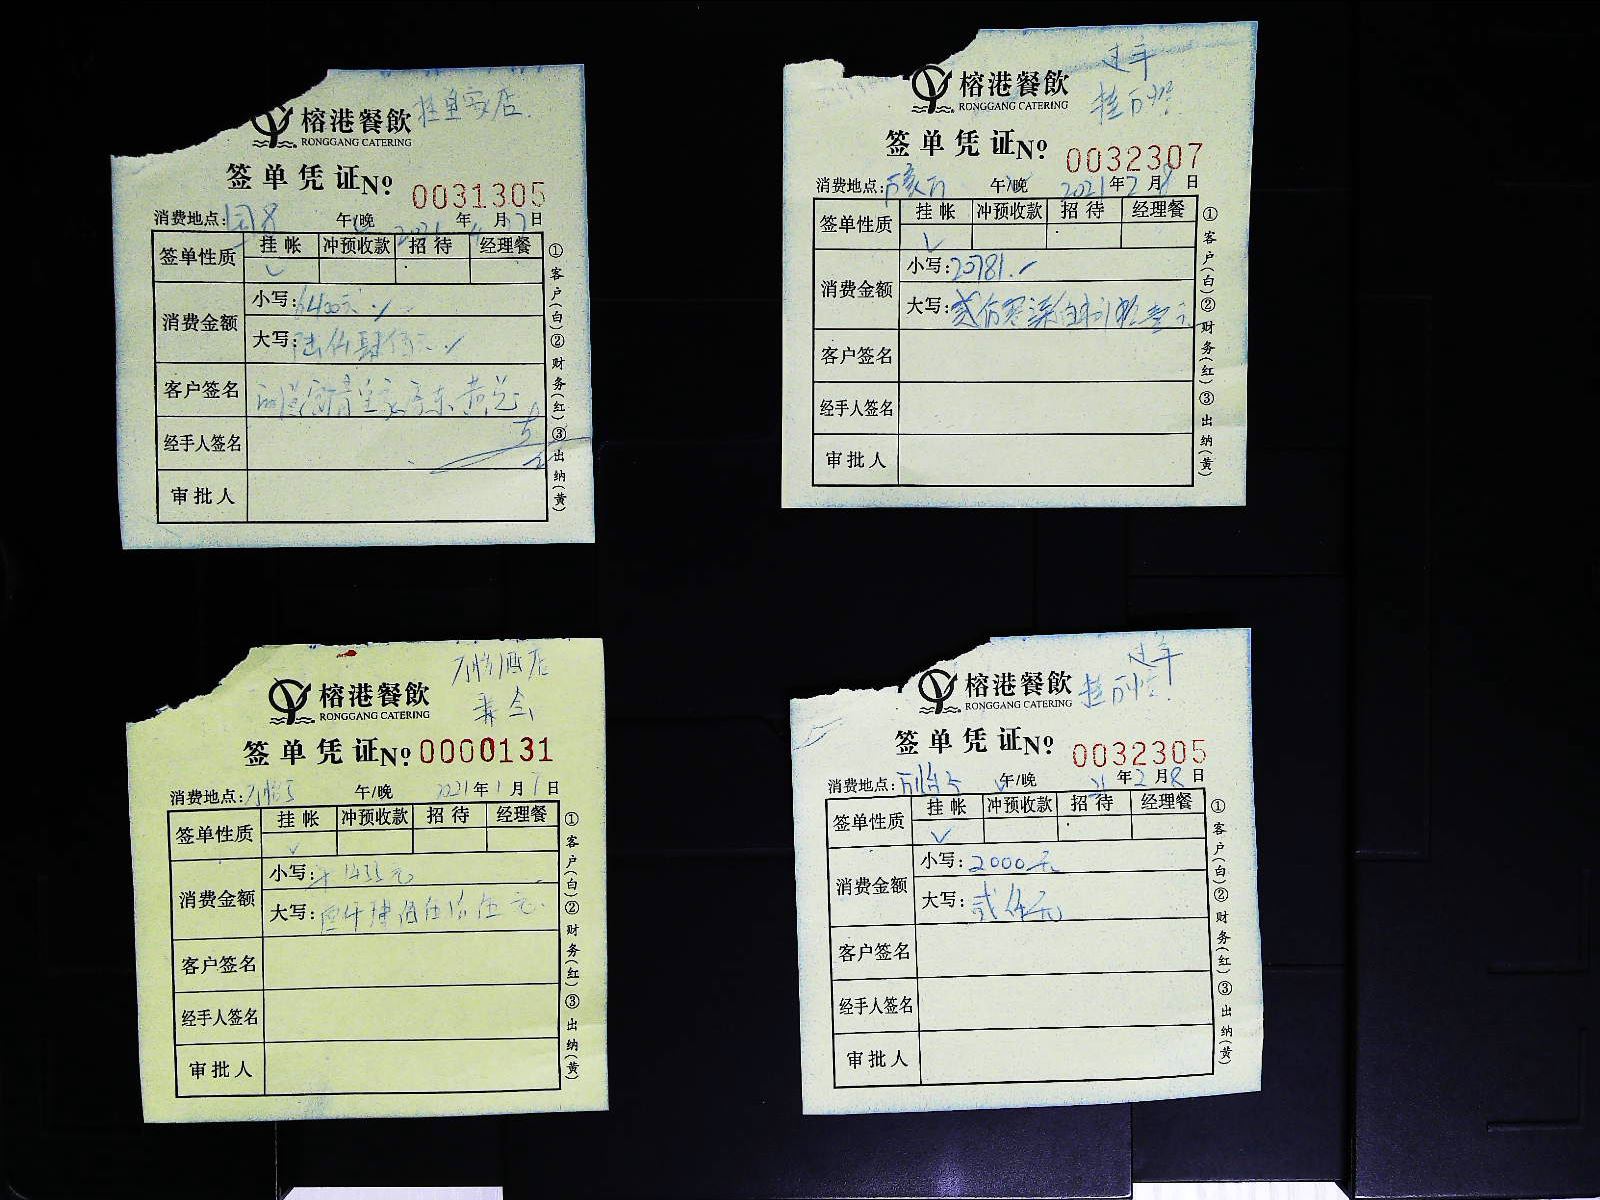 榕港餐飲
RONGGANG CATERING
签单凭证 No 0031305
消费地点: 午/晚 2021年 月17日
签单性质 挂帐 冲预收款 招待 经理餐
消费金额
小写: 6400元
大写: 陆仟肆佰元
客户签名
经手人签名
审批人
①客户(白)②财务(红)③出纳(黄)
过年
榕港餐飲
RONGGANG CATERING
签单凭证 No 0032307
消费地点: 午/晚 2021年2月8日
签单性质 挂帐 冲预收款 招待 经理餐
消费金额
小写: 20781.
大写:
客户签名
经手人签名
审批人
①客户(白)②财务(红)③出纳(黄)
酒店
榕港餐飲
RONGGANG CATERING
签单凭证 No 0000131
消费地点: 午/晚 2021年1月1日
签单性质 挂帐 冲预收款 招待 经理餐
消费金额
小写:
大写:
客户签名
经手人签名
审批人
①客户(白)②财务(红)③出纳(黄)
过年
榕港餐飲
RONGGANG CATERING
签单凭证 No 0032305
消费地点: 午/晚 21年2月8日
签单性质 挂帐 冲预收款 招待 经理餐
消费金额
小写: 2000元
大写: 贰仟元
客户签名
经手人签名
审批人
①客户(白)②财务(红)③出纳(黄)